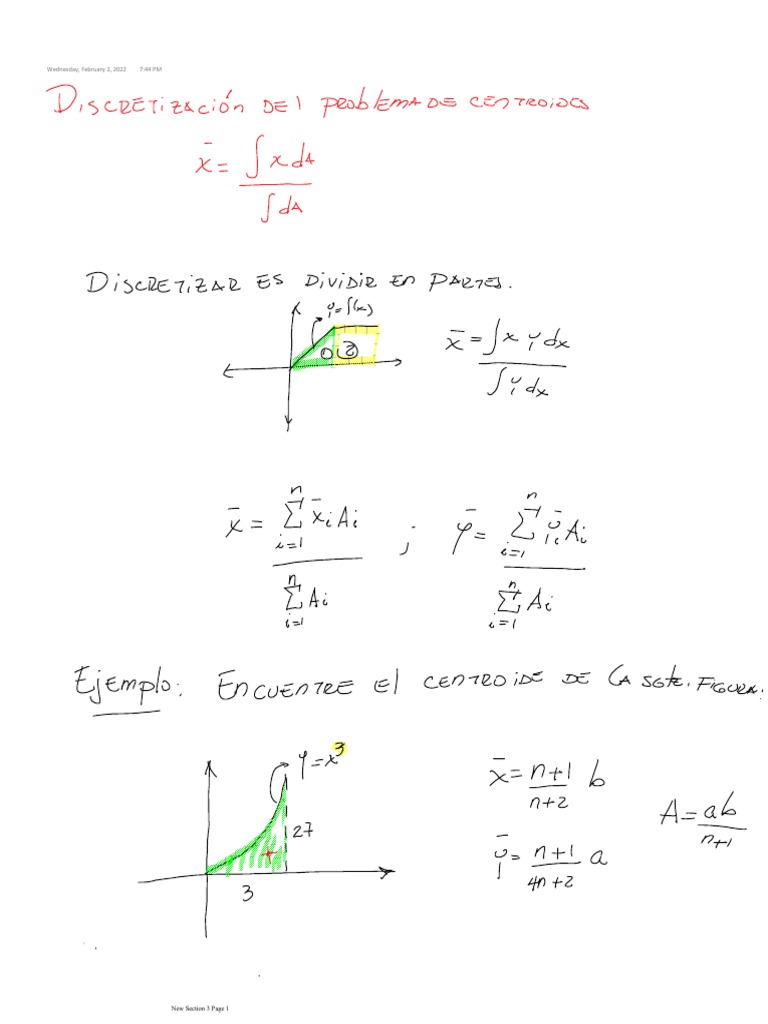 Wednesday, February 2, 2022 7:44 PM
DISCRETIZACIÓN DEL PROBLEMA DE CENTROIDES
x̄ = ∫ x dA / ∫ dA
DISCRETIZAR ES DIVIDIR EN PARTES.
y = f(x)
① ②
x̄ = ∫ x y dx / ∫ y dx
x̄ = Σ_{i=1}^{n} x̄i Ai / Σ_{i=1}^{n} Ai ; ȳ = Σ_{i=1}^{n} ȳi Ai / Σ_{i=1}^{n} Ai
Ejemplo: ENCUENTRE El CENTROIDE DE LA SGTE. FIGURA:
y = x³
27
+
3
x̄ = n+1 / n+2 b
ȳ = n+1 / 4n+2 a
A = ab / n+1
New Section 3 Page 1